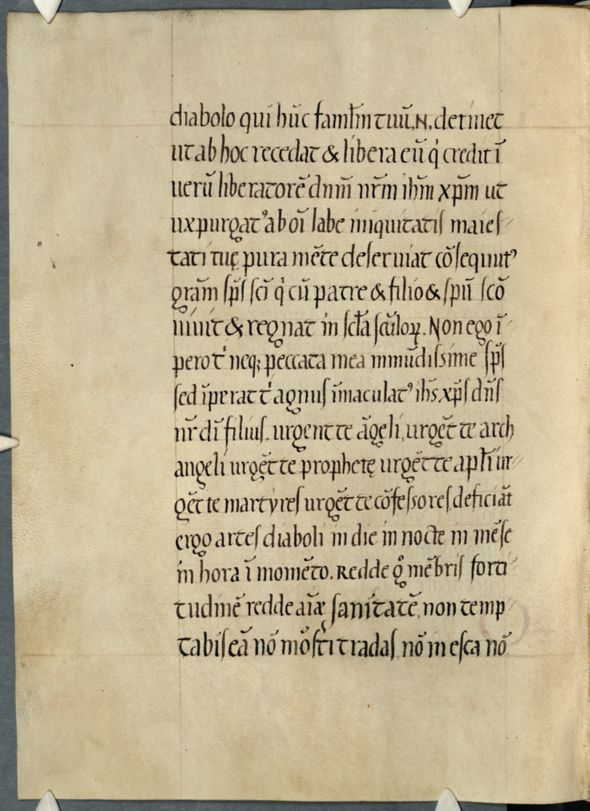 diabolo qui hūc famłm tuū .N. detinet
ut ab hoc recedat & libera eū q̇ credit ī
uerū liberatorē dn̄m nr̄m ih̄m xp̄m ut
uxpurgatꝰ ab oī labe iniquitatis maies-
tati tuę pura mēte deseruiat cōsequutꝰ
grām sp̄s sc̄i q̇ cū patre & filio & spū scō
uiuit & regnat in scła scułoꝝ. Non ego ī
pero t̄ neq; peccata mea inmūdissime sp̄s
sed īperat t̄ agnus īmaculatꝰ ih̄s xp̄s dn̄s
nr̄ dī filius. urgent te āgeli. urgēt te arch
angeli urgēt te prophetę urgēt te apłi ur-
gēt te martyres urgēt te cōfessores. deficiāt
ergo artes diaboli in die in nocte in mēse
in hora ī momēto. Redde g̊ mēbris forti-
tudinē redde aīæ sanitatē. non temp-
tabis eā nō mōst̄i tradas. nō in esca nō